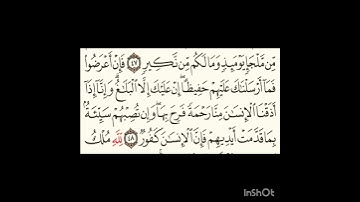 مِّن مَّلْجَإٍ يَوْمَئِذٍ وَمَا لَكُم مِّن نَّكِيرٍ ٤٧ فَإِنْ أَعْرَضُوا
فَمَا أَرْسَلْنَاكَ عَلَيْهِمْ حَفِيظًا إِنْ عَلَيْكَ إِلَّا الْبَلَاغُ وَإِنَّا إِذَا
أَذَقْنَا الْإِنسَانَ مِنَّا رَحْمَةً فَرِحَ بِهَا وَإِن تُصِبْهُمْ سَيِّئَةٌ
بِمَا قَدَّمَتْ أَيْدِيهِمْ فَإِنَّ الْإِنسَانَ كَفُورٌ ٤٨ لِلَّهِ مُلْكُ
InShOt